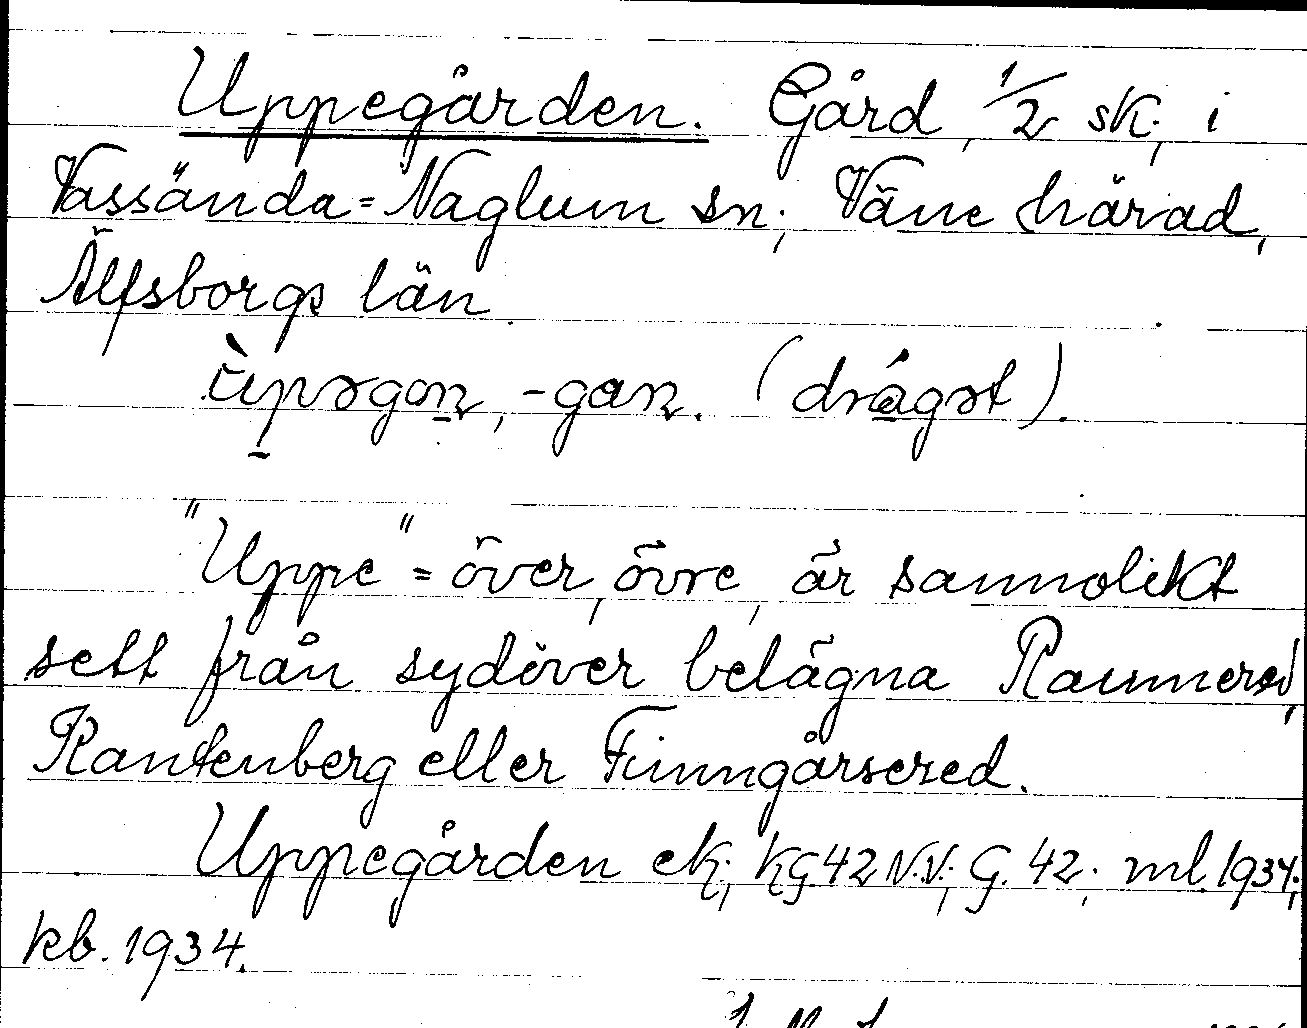 Uppegården. Gård, 1/2 sk., i
Vassända=Naglum sn; Väne härad,
Älfsborgs län.
ùpəgon, -gan. (drágət).
"Uppe" = över, övre, är sannolikt
sett från sydöver belägna Raunered,
Rantenberg eller Finngårsered.
Uppegården ek; KG42N.V; G. 42. ml. 1934;
kb. 1934.